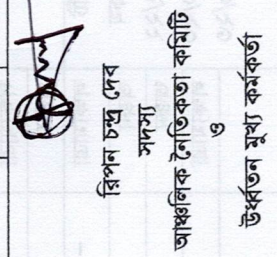 রিপন চন্দ্র দেব
সদস্য
আঞ্চলিক নৈতিকতা কমিটি
ও
উর্ধ্বতন মুখ্য কর্মকর্তা